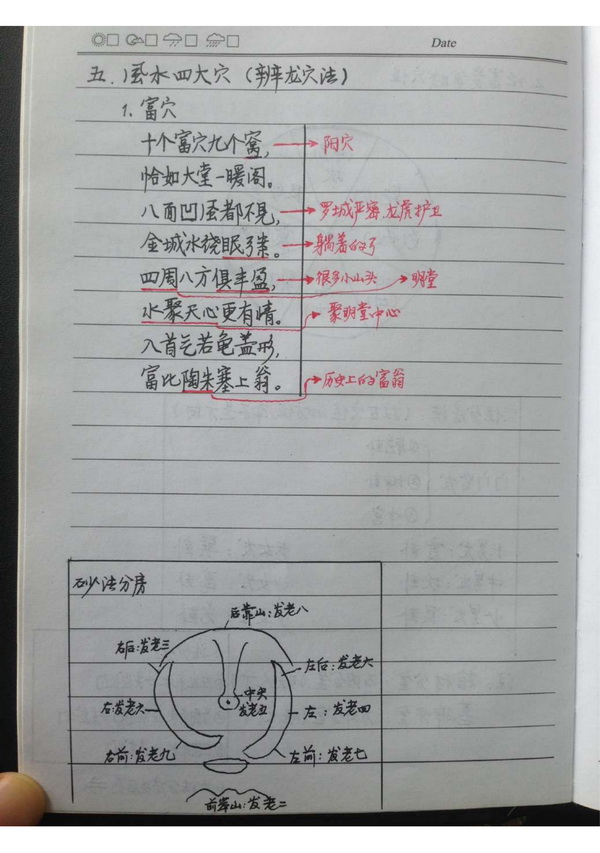 Date
五.风水四大穴（辨龙穴法）
1.富穴
十个富穴九个窝, → 阳穴
恰如大堂一暖阁。
八面凹风都不见, → 罗城严密,龙虎护卫
金城水绕眠弓案。 → 躺着的弓
四周八方俱丰盈, → 很多小山头 → 明堂
水聚天心更有情。 → 聚明堂中心
入首气若龟盖形,
富比陶朱塞上翁。 → 历史上的富翁
砂法分房
后靠山:发老八
右后:发老三
左后:发老六
中央
发老五
右:发老六
左:发老四
右前:发老九
左前:发老七
前案山:发老二